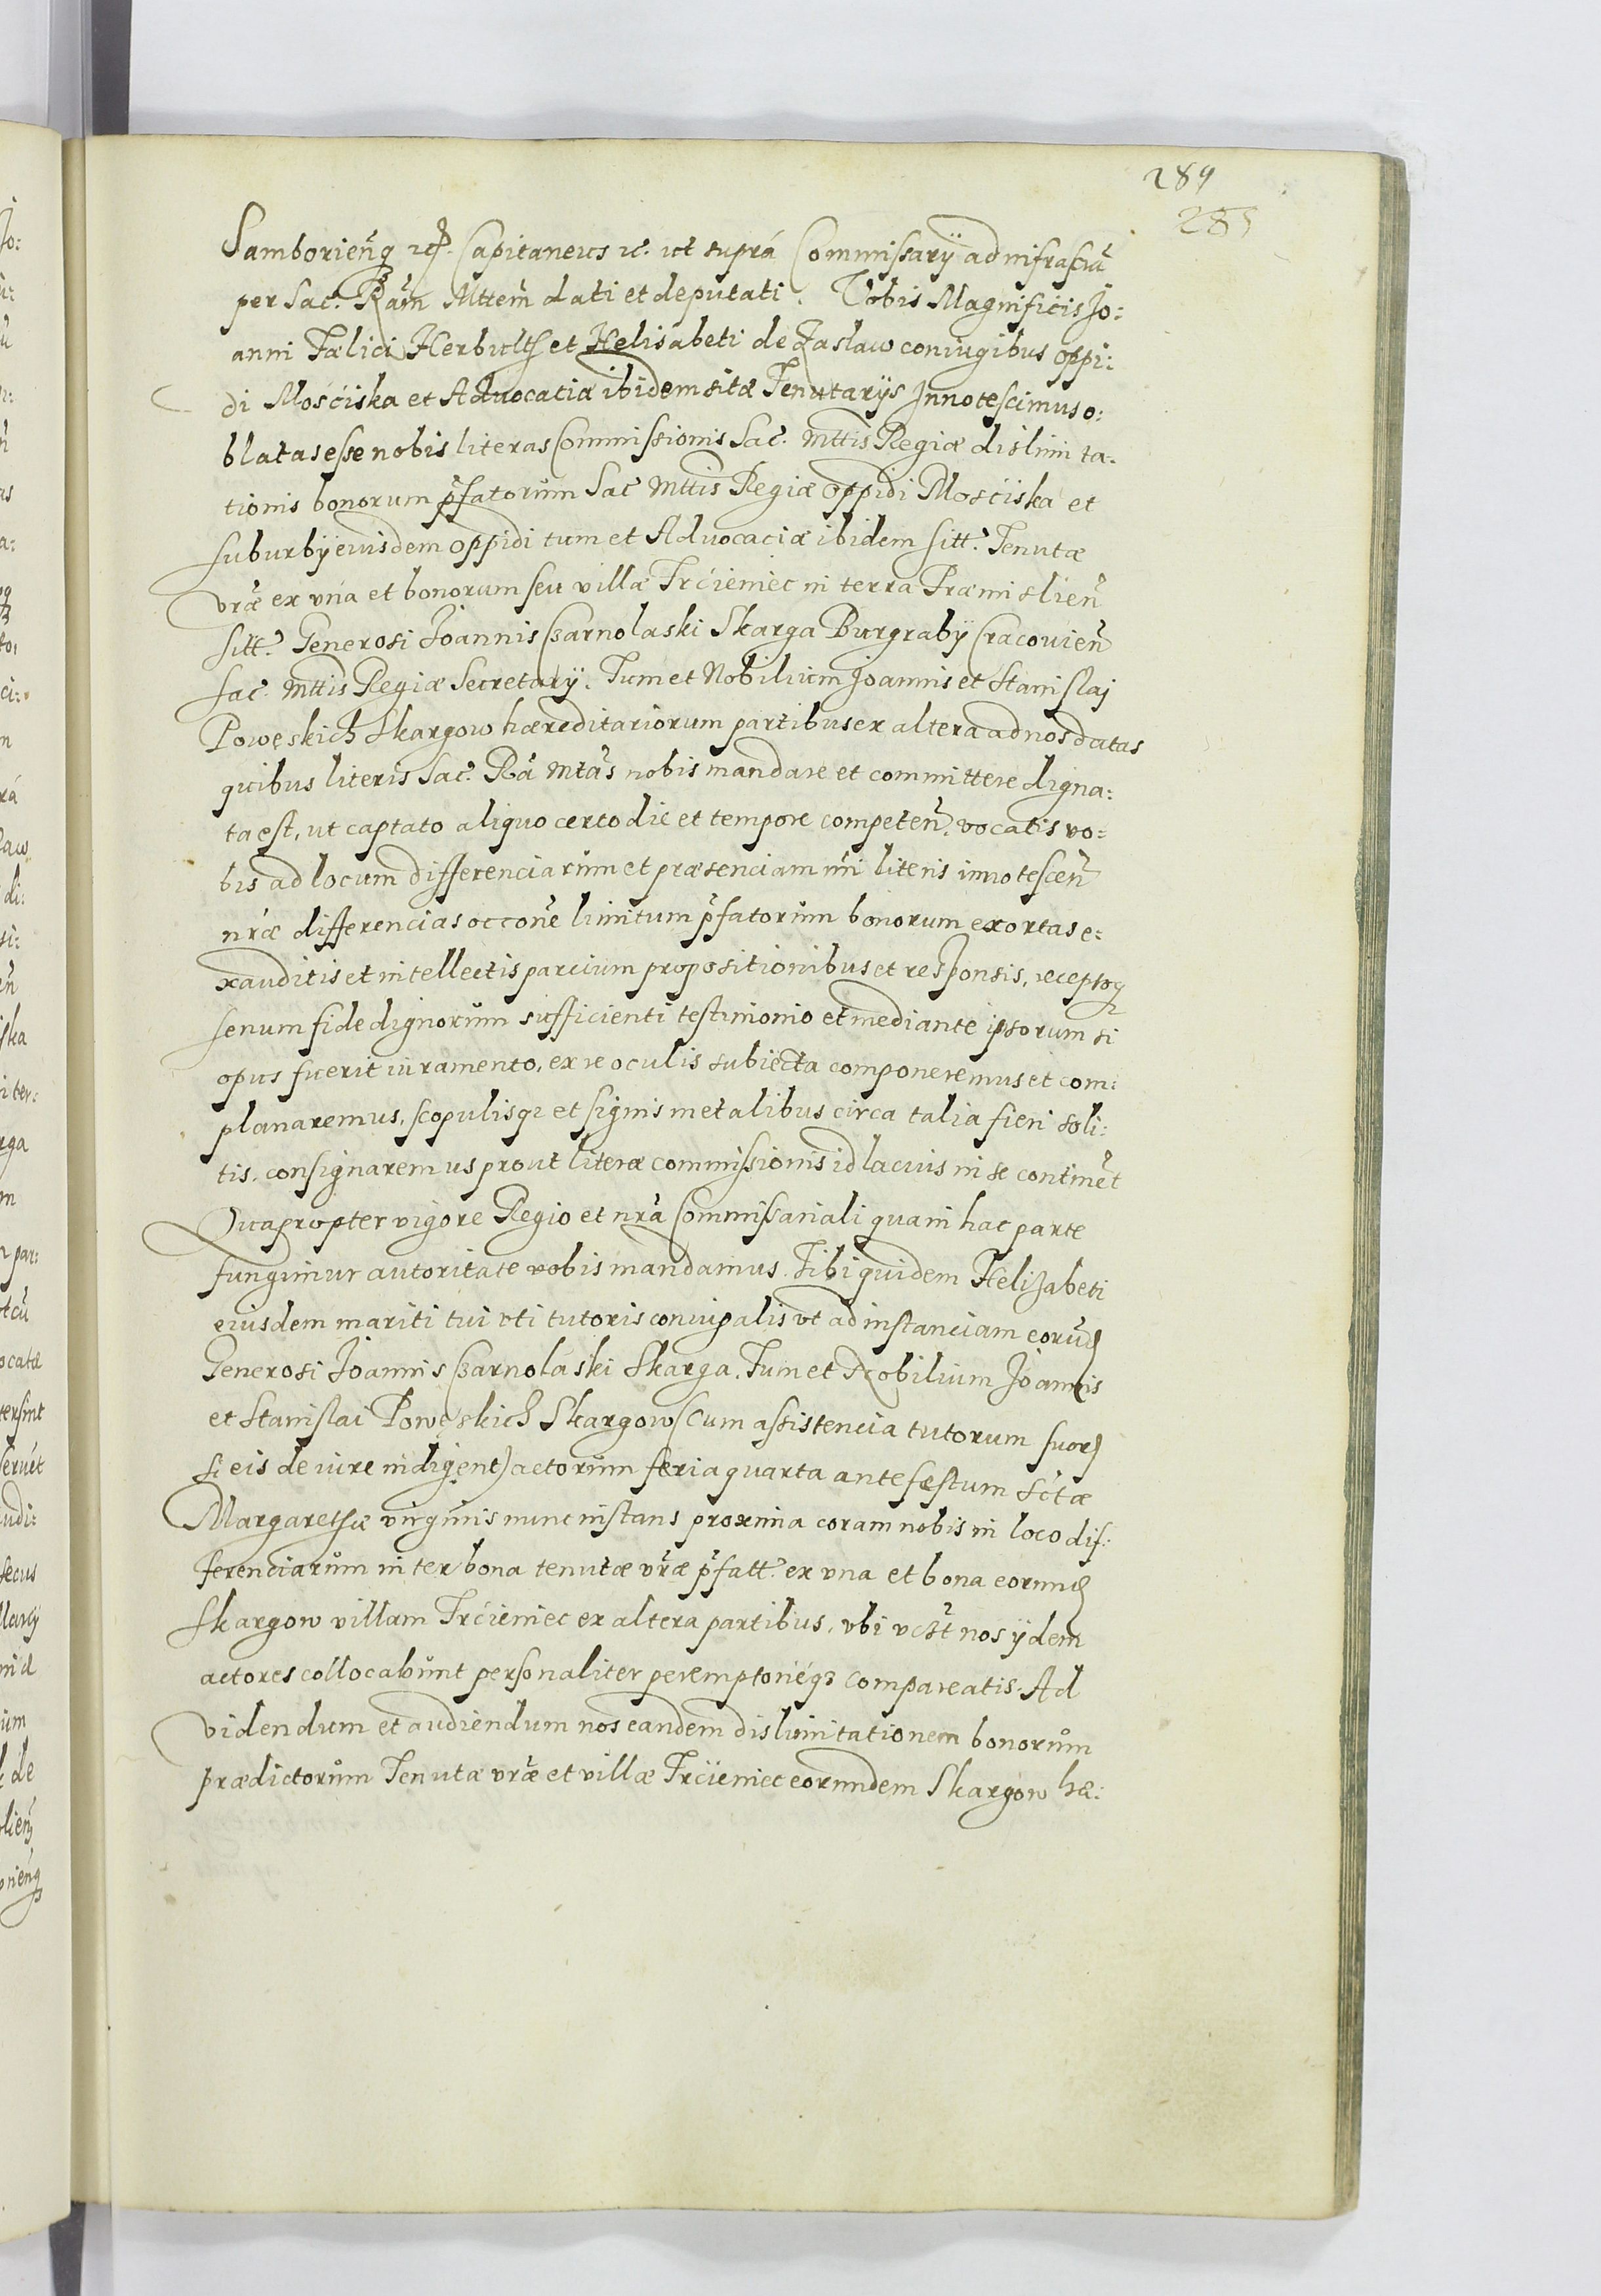 289
285
Samborien̄q₃ etc. Capitaneus etc. ut suprá Commissarÿ ad infrascta͂
per Sac. Ra͂m Mttem̄ dati et deputati. Vobis Magnificis Jo:
anni Fælici Herbulth et Helisabeti de Zaslaw coniugibus oppi:
di Mosćiska et Aduocatiæ ibidem sitæ Tenutarÿs Innotescimus o:
blatas esse nobis literas Commissionis Sac. Mttis Regiæ dislimita-
tionis bonorum p̄fatorům Sac Mttis Regiæ oppidi Mosćiska et
suburbÿ eiusdem oppidi tum et Aduocaciæ ibidem sitt. Tenutæ
vr̄æ ex vna et bonorum seu villæ Trćieniec in terra Præmislien̄
sitt. Generosi Joannis Czarnolaski Skarga Burgrabÿ Cracouien̄
Sac. Mttis Regiæ Secretarÿ. Tum et Nobilium Joannis et Stanislaj
Powęskich Skargow hæreditariorum partibus ex altera ad nos datas
quibus literis Sac. Ra͂ Mta͂s nobis mandare et committere digna:
ta est, ut captato aliquo certo die et tempore competen̄. vocatis vo:
bis ad locum differenciarům et præsenciam nr̄i literis innotescen̄
nr̄æ differencias occōne limitum p̄fatorům bonorum exortas e:
xauditis et intellectis parcium propositionibus et responsis, receptoq₃
senum fide dignorům sufficienti testimonio et mediante ipsorum si
opus fuerit iuramento, ex re oculis subiecta componeremus et com:
planaremus, scopulisq₃ et signis metalibus circa talia fieri soli:
tis, consignaremus prout literæ commissionis id lacius in se continēt
Quapropter vigore Regio et nr̄a Commissariali qua in hac parte
fungimur autoritate vobis mandamus. Tibi quidem Helizabeti
eiusdem mariti tui vti tutoris coniugalis vt ad instanciam eorūd
Generosi Joannis Czarnoláski Skarga. Tum et Nobilium Joannis
et Stanislai Powęskich Skargow (cum assistencia tutorum suor
si eis de iure indigent) actorům feria quarta ante festum Sctæ
Margarethæ virginis nunc instans proxima coram nobis in loco dif:
ferenciarům inter bona tenutæ vr̄æ p̄fatt. ex vna et bona eorund
Skargow villam Trćieniec ex altera partibus, vbi nos ÿdem
actores collocabůnt personaliter peremptorieq₃ compareatis. Ad
videndum et audiendum nos eandem dislimitationem bonorům
prædictorům Tenutæ vr̄æ et villæ Trćieniec eorundem Skargow hæ: